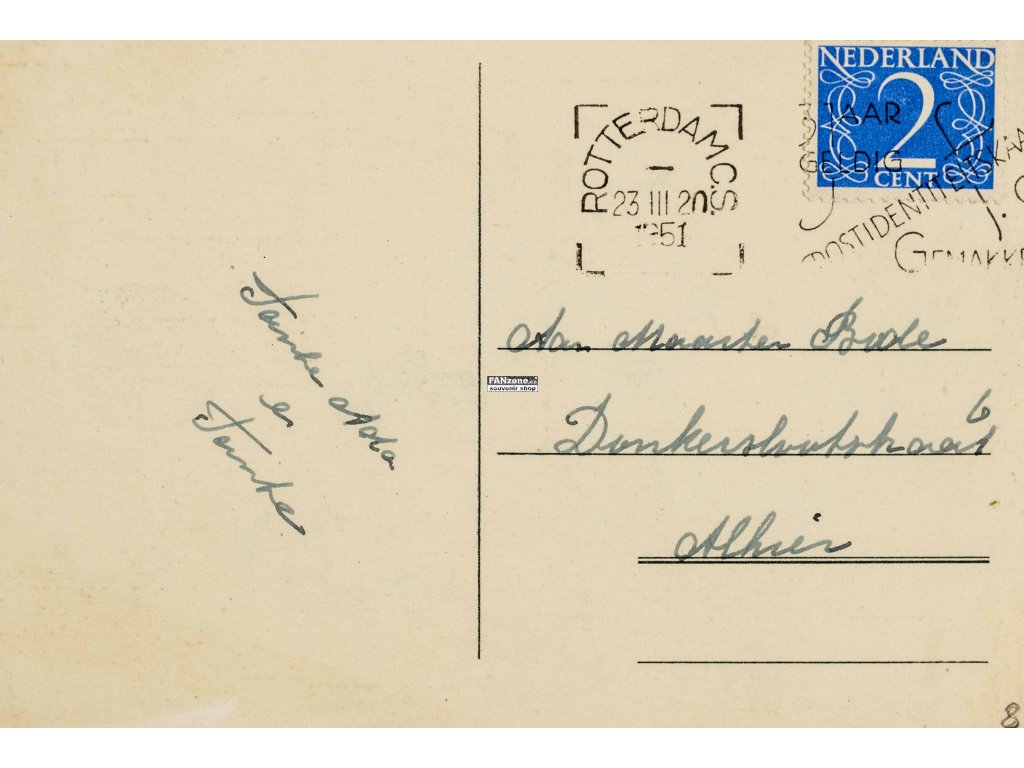 NEDERLAND
2
CENT
ROTTERDAM C.S.
I
23 III 20
1951
JAAR
GELDIG
POSTIDENTITEITSKAA
GEMAKKE
Aan Maarten Bode
FANzone.cz
souvenir shop
6
Donkerslootstraat
Alhier
Tante Adda
en
Tante
8